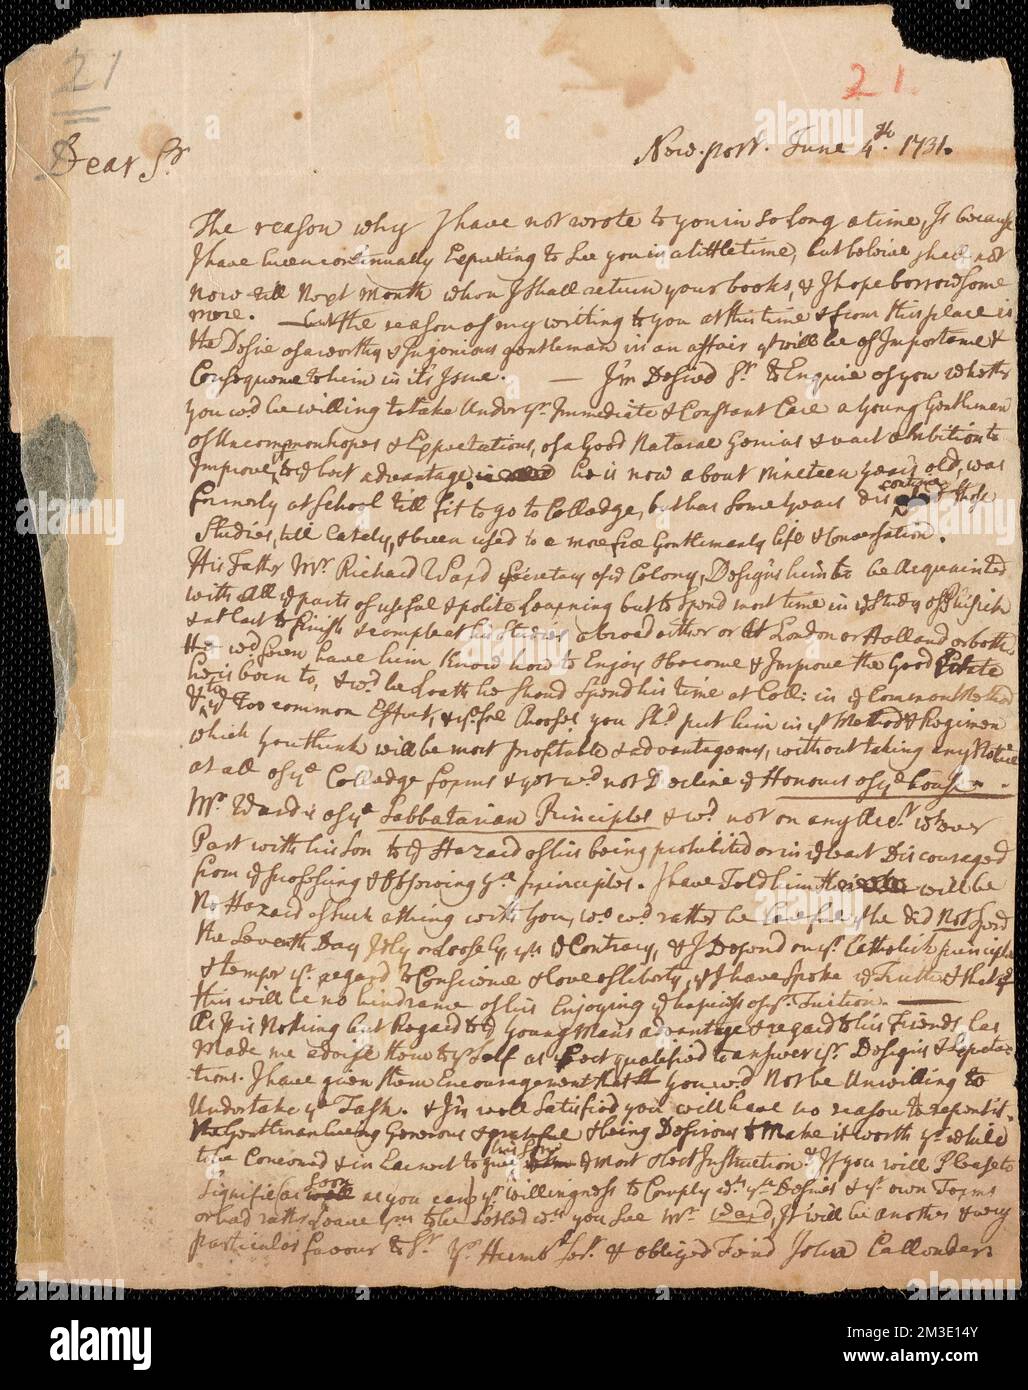 21
21.
New-port. June 4th. 1731.
Dear Sr
The reason why I have not wrote to you in so long a time, Is because
I have been continually Expecting to See you in a little time, but believe shall not
now till Next Month when I shall return your books, & I hope borrow Some
more. — but the reason of my writing to you at this time & from this place is
the Desire of a worthy & Ingenious gentleman in an affair yt will be of Importance &
Consequence to him in it's Issue. — I'm Desired Sr to Enquire of you whether
you wd be willing to take Under yr Immediate & Constant Care a Young Gentleman
of Uncommon hopes & Expectations, of a Good Natural Genius & vast ambition to
Improve to ye best advantage, he is now about nineteen years old, was
formerly at School till fit to go to Colledge, but has Some years those
Studies, till Lately, & been used to a more free Gentlemanly life & Conversation.
His Father Mr. Richard Ward Secretary of ye Colony, Designs him to be acquainted
with all ye parts of useful & polite Learning but to Spend most time in ye Study of
& at last to finish & compleat his Studies abroad either or at London or Holland or both
He wd Even have him Know how to Enjoy & become & Improve the Good Estate
he is born to, & wd be Loath he shoud Spend his time at Coll: in ye Common Method
& to Too common Effect, & Chooses you shd put him in yt Method & Regimen
which you think will be most profitable & advantageous, without taking any Notice
at all of ye Colledge forms & yet wd not Decline ye Honours of ye house.
Mr. Ward is of ye Sabbatarian Principles & wd not on any Acct wtever
Part with his Son to ye Hazard of his being prohibited or in ye least Discouraged
from ye professing & Observing ye principles. I have Told him there will be
No Hazard of such a thing with you, wo wd rather be Careful yt he did Not Spend
the Seventh Day Idly or Loosely, yn ye Contrary, & I Depend on yr Catholick principles
& temper yr regard to Conscience & love of liberty, yt I have Spoke ye Truth & that
this will be no hindrance of his Enjoying ye hapiness of yr Tuition. —
As It is Nothing but Regard to ye Young Mans advantage & regard to his Friends has
Made me advise them to yr Self as best qualified to answer yr Designs & Expecta-
tions. I have given them Encouragement that you wd Not be Unwilling to
Undertake ye Task. & I'm well Satisfied you will have no reason to repent it.
The Gentleman being Generous & grateful & being Desirous to Make it worth yr while
to be Concerned & in Earnest to give his Son ye most & best Instruction. If you will Please to
Signifie (as Soon as you can) yr willingness to Comply wth ye Desires & yr own Terms
or had rather Leave ym to be Setled wn you See Mr. Ward, It will be another & very
particular favour to Sr Yr Humb Ser. & obliged Friend John Callender